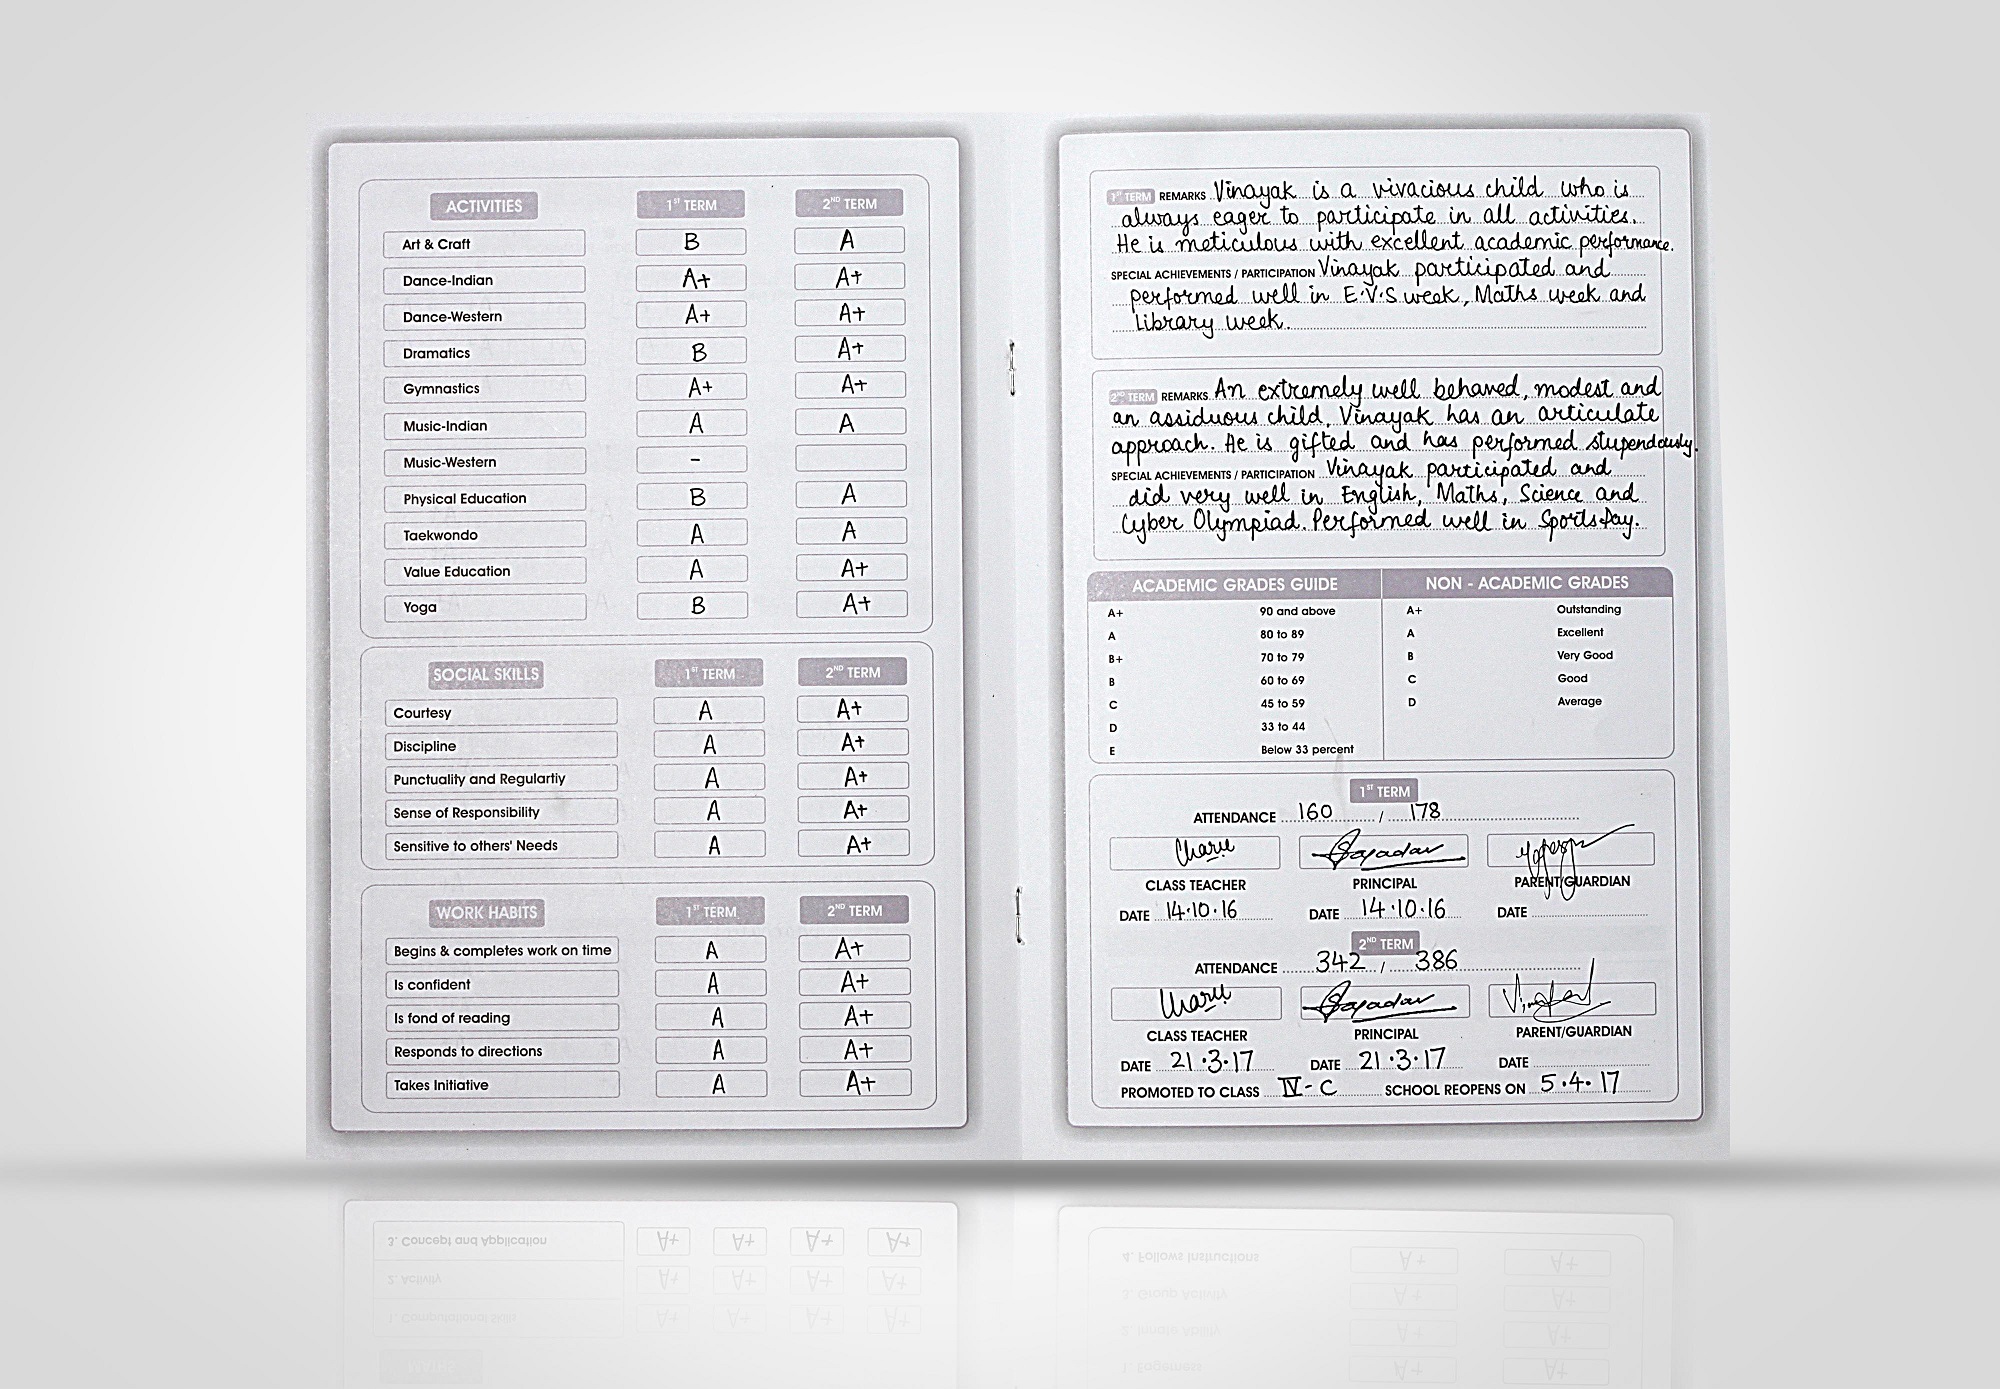 ACTIVITIES 1ST TERM 2ND TERM
Art & Craft B A
Dance-Indian A+ A+
Dance-Western A+ A+
Dramatics B A+
Gymnastics A+ A+
Music-Indian A A
Music-Western -
Physical Education B A
Taekwondo A A
Value Education A A+
Yoga B A+
SOCIAL SKILLS 1ST TERM 2ND TERM
Courtesy A A+
Discipline A A+
Punctuality and Regulartiy A A+
Sense of Responsibility A A+
Sensitive to others' Needs A A+
WORK HABITS 1ST TERM 2ND TERM
Begins & completes work on time A A+
Is confident A A+
Is fond of reading A A+
Responds to directions A A+
Takes Initiative A A+
1ST TERM REMARKS Vinayak is a vivacious child who is
always eager to participate in all activities.
He is meticulous with excellent academic performance.
SPECIAL ACHIEVEMENTS / PARTICIPATION Vinayak participated and
performed well in E.V.S week, Maths week and
Library week.
2ND TERM REMARKS An extremely well behaved, modest and
an assiduous child, Vinayak has an articulate
approach. He is gifted and has performed stupendously.
SPECIAL ACHIEVEMENTS / PARTICIPATION Vinayak participated and
did very well in English, Maths, Science and
Cyber Olympiad. Performed well in Sports Day.
ACADEMIC GRADES GUIDE NON - ACADEMIC GRADES
A+ 90 and above A+ Outstanding
A 80 to 89 A Excellent
B+ 70 to 79 B Very Good
B 60 to 69 C Good
C 45 to 59 D Average
D 33 to 44
E Below 33 percent
1ST TERM
ATTENDANCE 160 / 178
Charu
CLASS TEACHER PRINCIPAL PARENT/GUARDIAN
DATE 14.10.16 DATE 14.10.16 DATE
2ND TERM
ATTENDANCE 342 / 386
Charu
CLASS TEACHER PRINCIPAL PARENT/GUARDIAN
DATE 21.3.17 DATE 21.3.17 DATE
PROMOTED TO CLASS IV-C SCHOOL REOPENS ON 5.4.17
3. Concept and Application A+ A+ A+ A+
2. Activity A+ A+ A+ A+
1. Computational Skills A+ A+ A+ A+
MATHS
4. Follows Instructions A+ A+
3. Group Activity A+ A+
2. Innate Ability A+ A+
1. Eagerness A+ A+